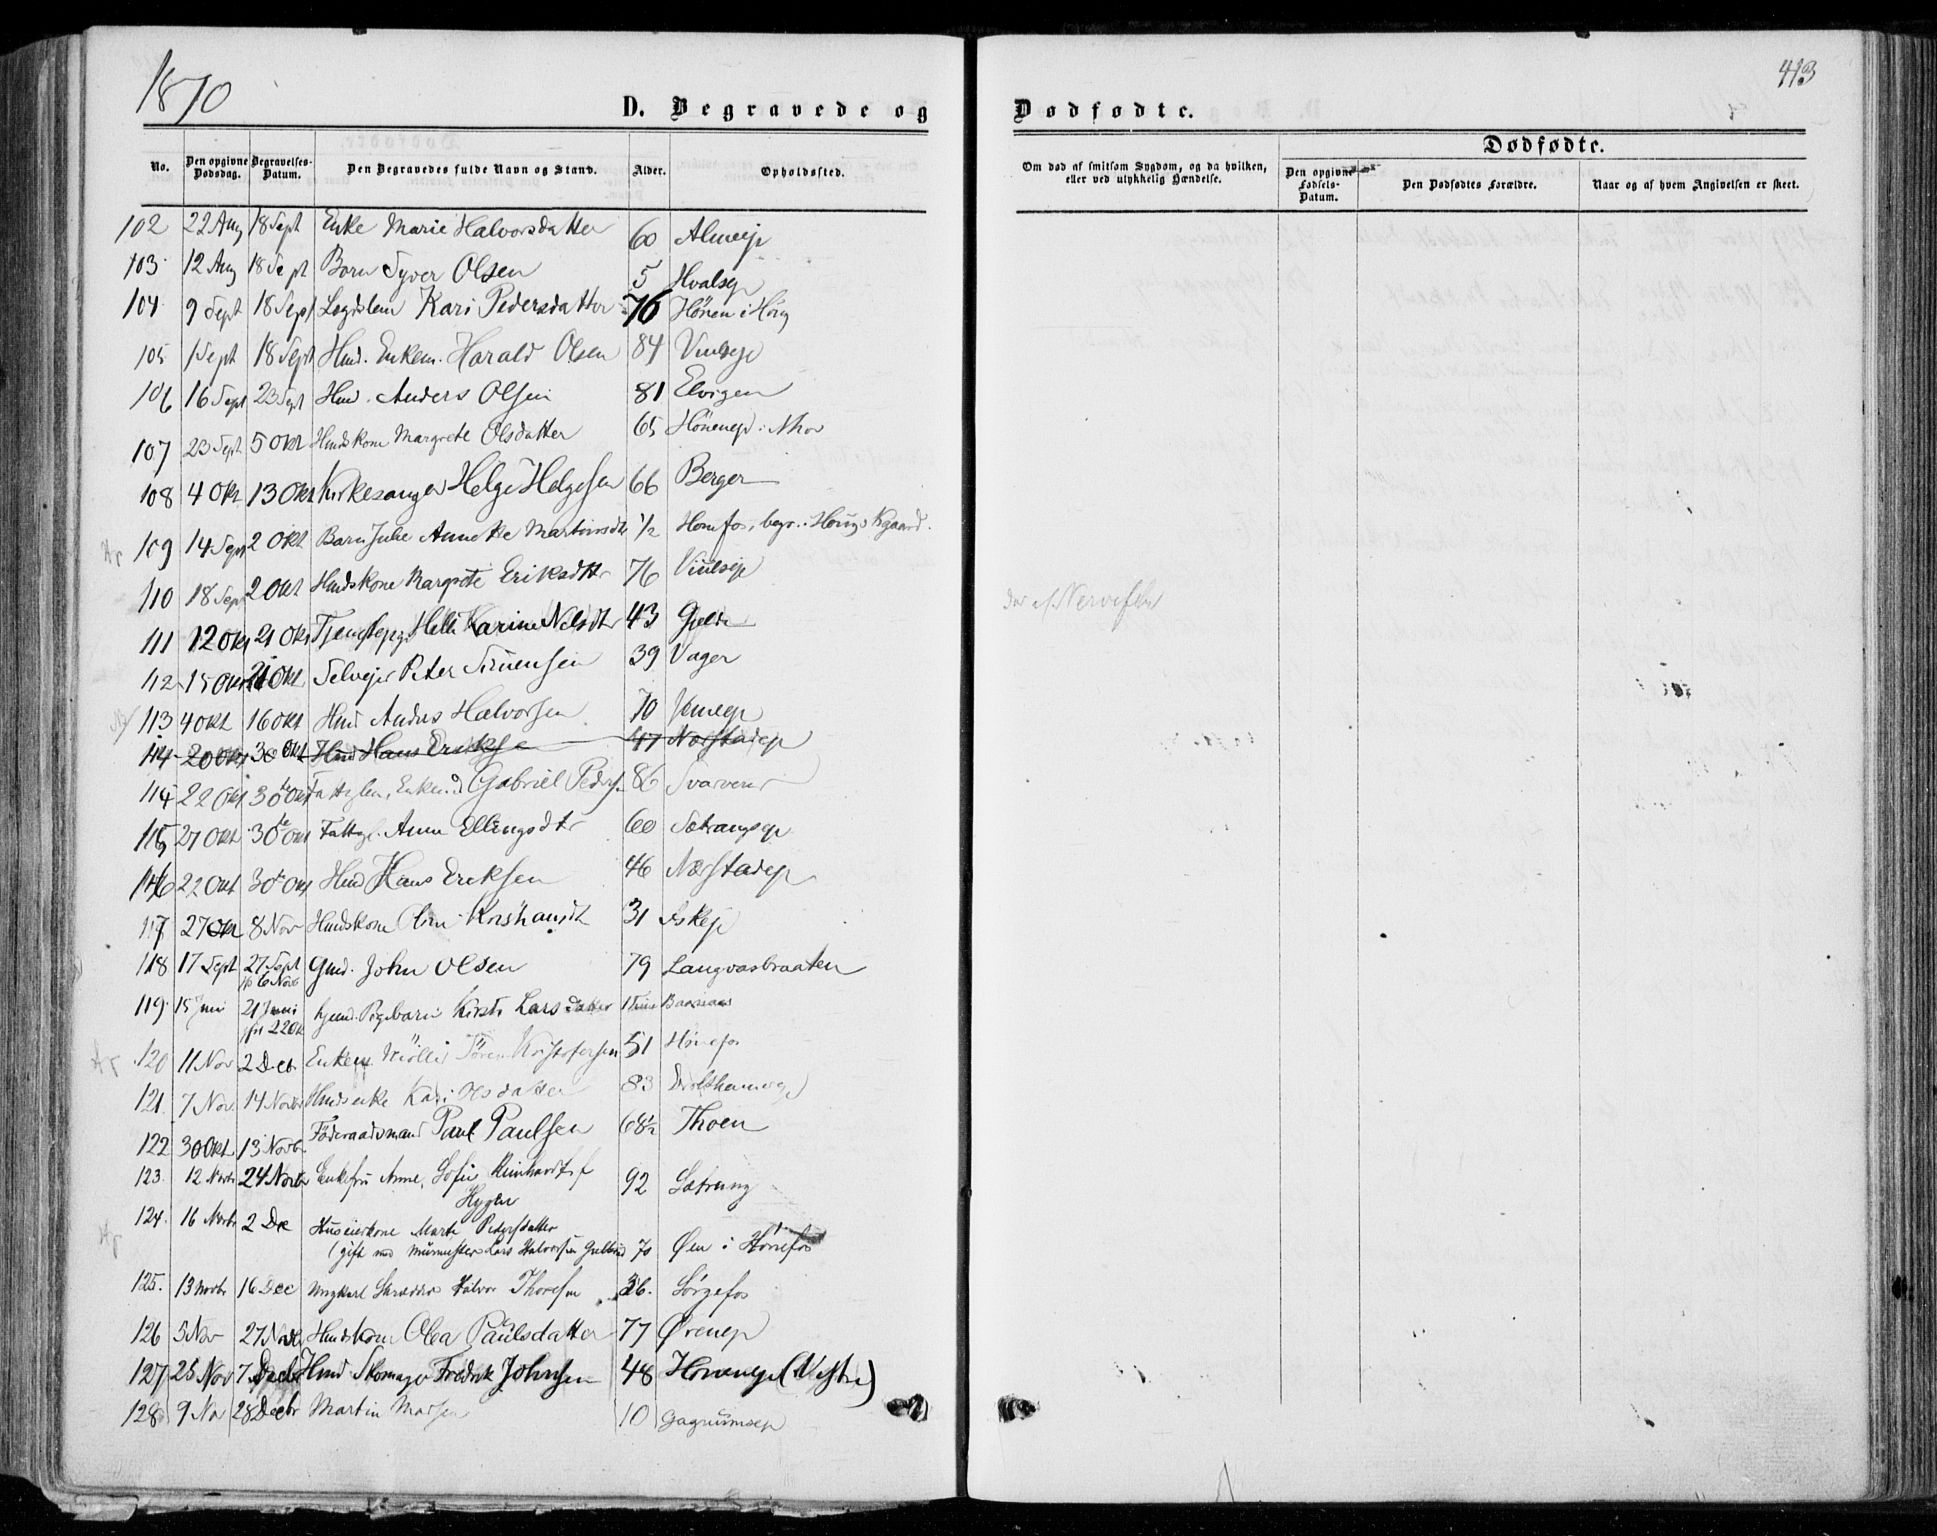 1870
413
D. Begravede og Dødfødte.
Dødfødte.
No. Den opgivne Dødsdag. Begravelses-Datum. Den Begravedes fulde Navn og Stand. Alder. Opholdssted. Om død af smitsom Sygdom, og da hvilken, eller ved ulykkelig Hændelse. Den opgivne Fødsels-Datum. Den Dødfødtes Forældre. Naar og af hvem Angivelsen er skeet.
102 22 Aug 18 Sept Enke Marie Halvorsdatter 60
103 12 Aug 18 Sept Barn Syver Olsen 5 Hvalsep
104 9 Sept 18 Sept Lægdslem Kari Pedersdatter 76 Hönen i Hörig
105 1 Sept 18 Sept Hmd. Enkem. Harald Olsen 84
106 16 Sept 23 Sept Hmd. Anders Olsen 81 Elvigen
107 23 Sept 5 Okt Hmdskone Margrete Olsdatter 65 Hönenep i Nhov
108 4 Okt 13 Okt Kirkesanger Helge Helgesen 66 Berger
109 14 Sept 2 Okt Barn Julie Annette Martinsdtr 1/2 Hönefos, begr. i Hörigs Kgaard.
110 18 Sept 2 Okt Hmdskone Margrete Eriksdtr 76
111 12 Okt 21 Okt Helle Karine Nelsdtr 43
112 15 Okt 21 Okt Selveier Peter 39 Vager
113 4 Okt 16 Okt Hmd Anders Halvorsen 70
114 20 Okt 30 Okt Hmd Hans Eriksen 47 Nærstadep
114 22 Okt 30te Okt Fattiglem, Enkemd Gabriel Peders 86 Svarveren
115 27 Okt 30te Okt Fattigl. Anne Ellingsdtr 60 Sætrangsep
116 22 Okt 30te Okt Hmd Hans Ericksen 46 Nærstadep
117 27 Okt 8 Nov Hmdskone 31 Askep
118 17 Sept 27 Sept Gmd. John Olsen 79 Langvasbraaten
6 Nov
119 15 Juni 21 Juni Kirsti Larsdatter
120 11 Nov 2 Decr Enkem Möller Sören Kristofersen 51 Hönefos
121. 7 Nov. 14 Novbr Hmdsenke Kari Olsdatter 83
122 30 Okt 13 Novbr. Föderaadsmand Paul Paulsen 68 1/2 Thoen
123. 12 Novbr 24 Novbr Enkefru Anne Sofie Reinhardt f 92 Sætrang
Hygen
124. 16 Novbr 2 Dec Huseierkone Marte Pedersdatter
(gift med Murmester Lars Halvorsen 70 Øen i Hönefos
125. 13 Novbr 16 Dec Ungkarl Skrædder Halvor Thoresen 36. Sörgefos
126 5 Nov 27 Novbr Hmdskone Olea Paulsdatter 77 Ørenep
127 25 Nov 7 Decbr Hmd Skomager Fredrik Johnsen 48 Hönenep (Vestre)
128 9 Nov 28 Decbr Martin 10 Gagnumsep
dør af Nervefeber